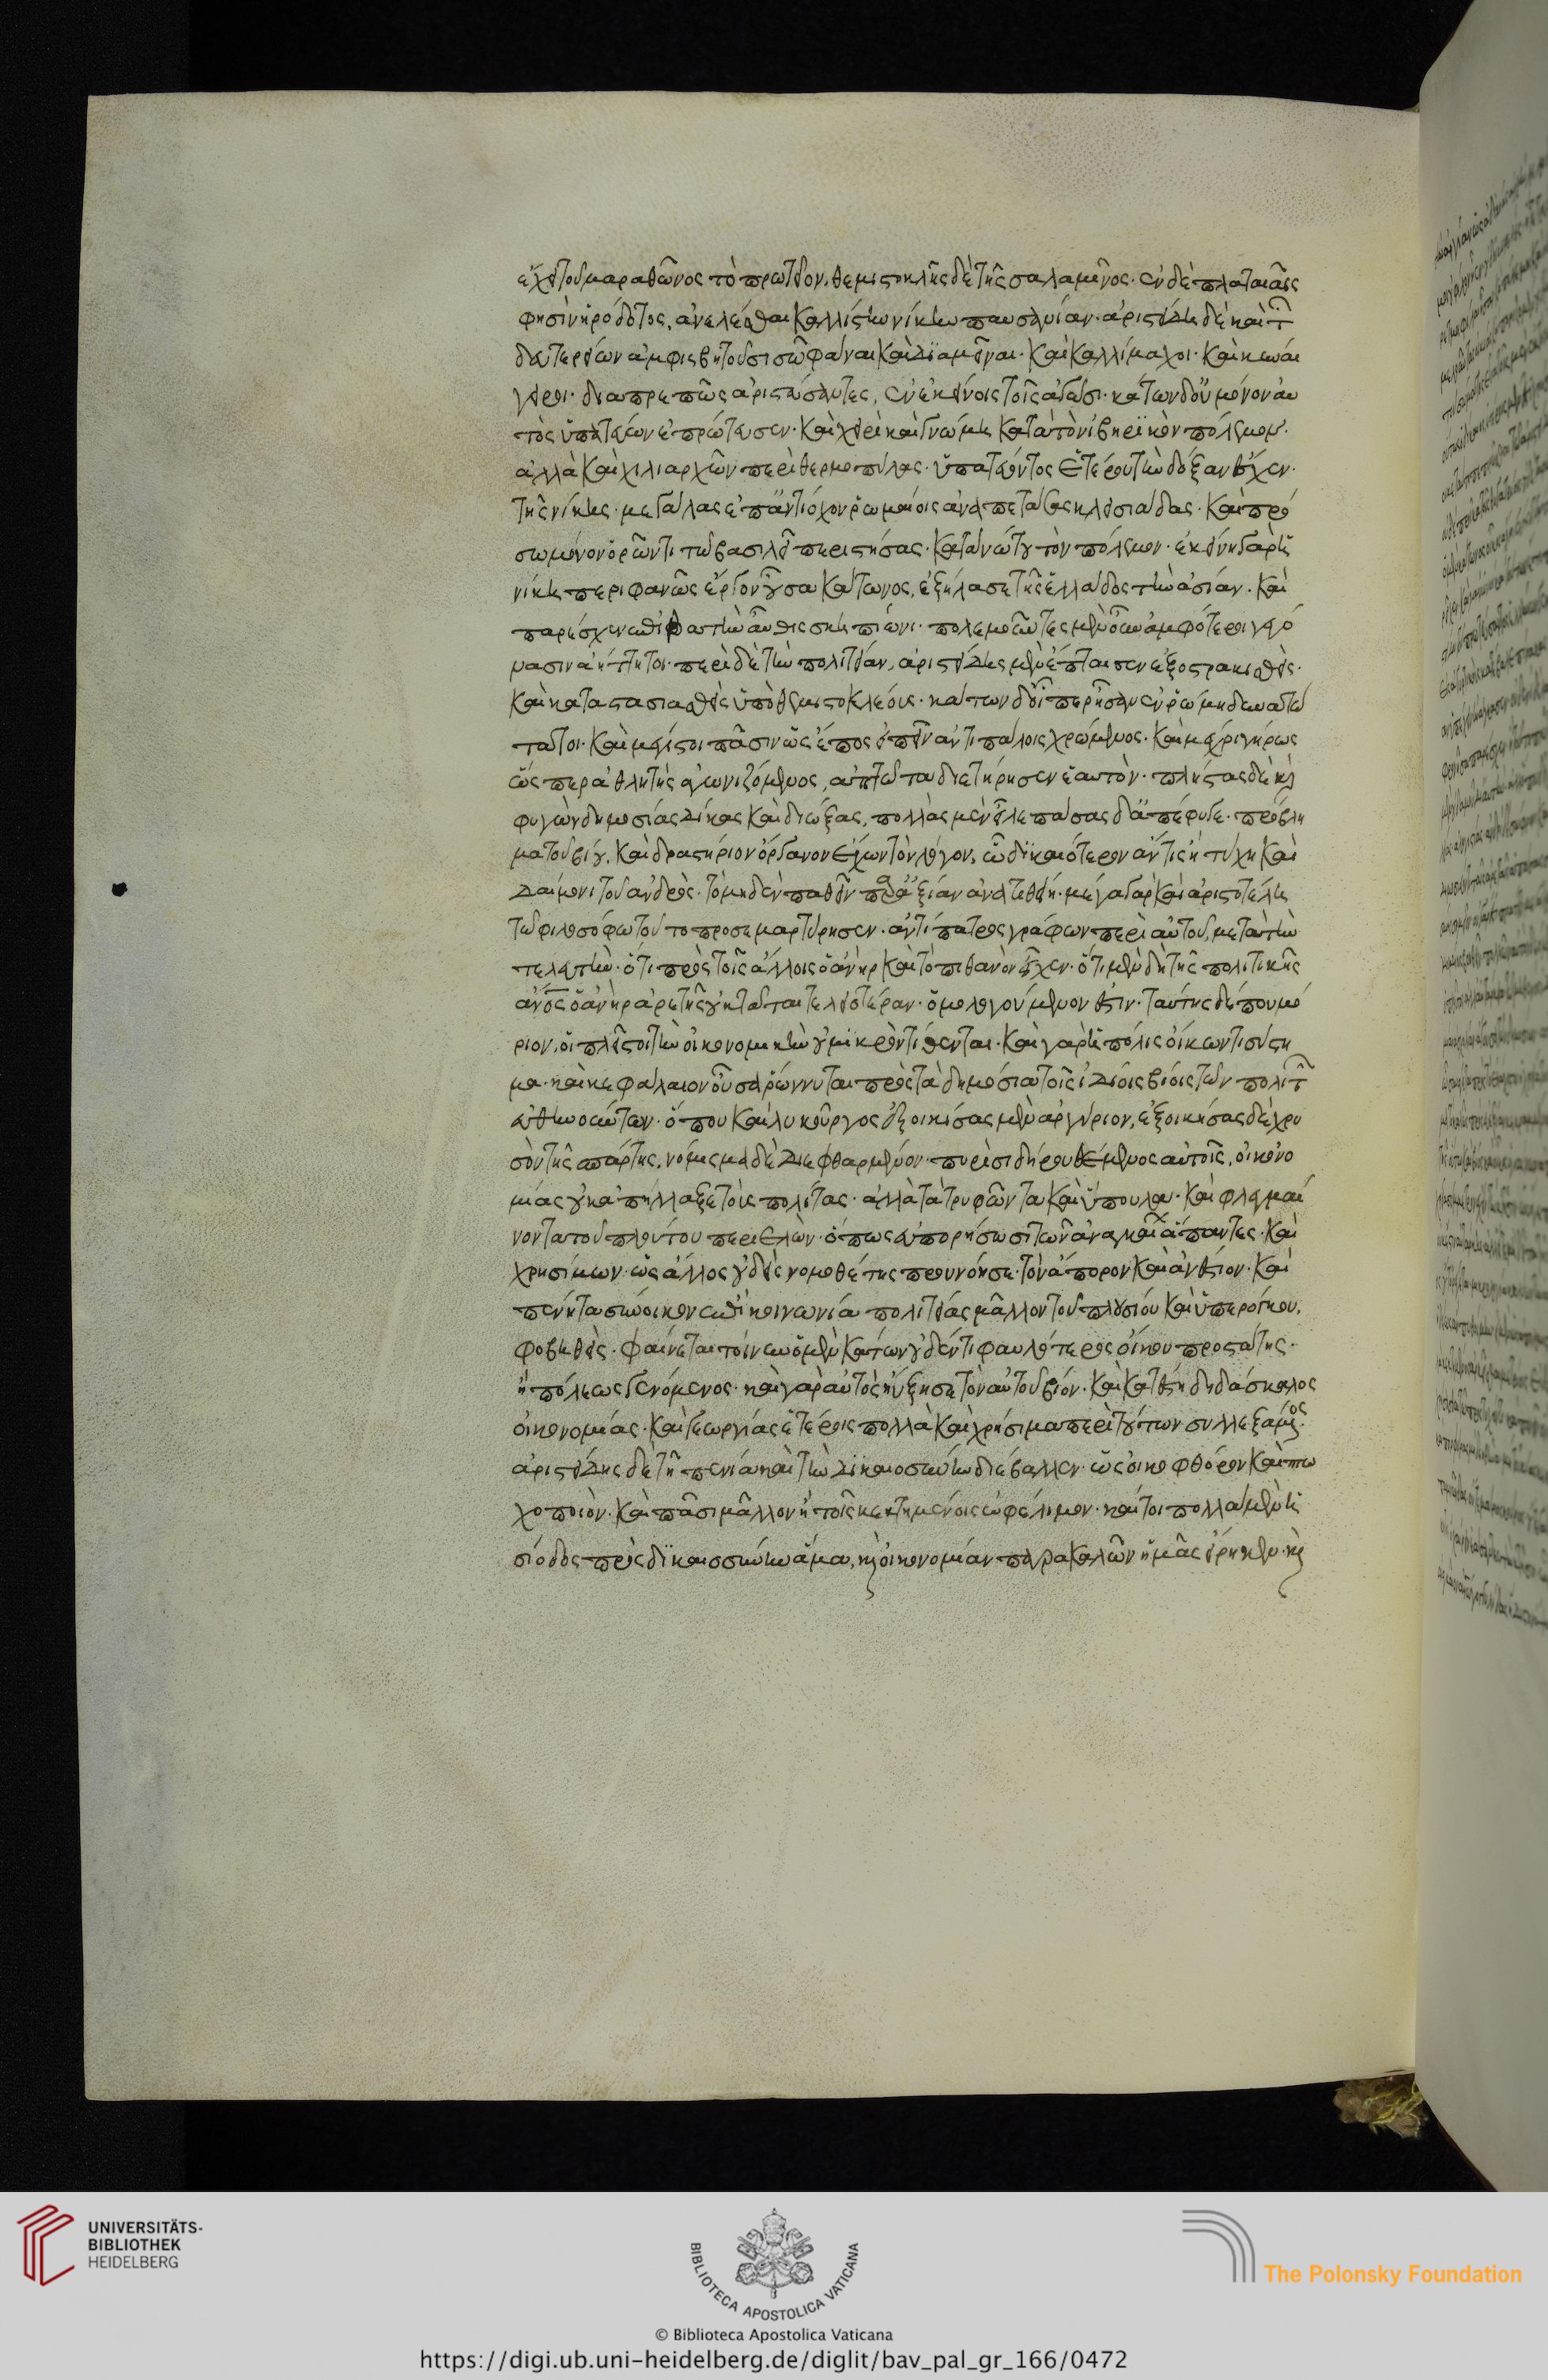 ἔχει τοῦ μαραθῶνος τὸ πρωτεῖον. θεμιστοκλῆς δὲ τῆς σαλαμῖνος. ἐν δὲ πλαταιαῖς
φησὶν ἡρόδοτος, ἀνελέσθαι καλλίστην νίκην παυσανίαν. ἀριστείδῃ δὲ καὶ τῶν
δευτερείων ἀμφισβητοῦσι σωφάναι καὶ ἀμεῖναι. καὶ καλλίμαχοι. καὶ κυναί
γειροι. διαπρεπῶς ἀριστεύσαντες, ἐν ἐκείνοις τοῖς ἀγῶσι. κάτων δ' οὐ μόνον αὐ
τὸς ὑπατεύων ἐπρώτευσεν. καὶ χειρὶ καὶ γνώμῃ κατὰ τὸν ἰβηρϊκὸν πόλεμον.
ἀλλὰ καὶ χιλιαρχῶν περὶ θερμοπύλας. ὑπατεύοντος ἑτέρου τὴν δόξαν ἔσχεν.
τῆς νίκης. μεγάλας ἐπ' ἀντίοχον ῥωμαίοις ἀναπετάσας κλεισιάδας. καὶ πρό
σω μόνον ὁρῶντι τῷ βασιλεῖ περιστήσας. κατὰ νώτου τὸν πόλεμον. ἐκείνη γὰρ ἡ
νίκη περιφανῶς ἔργον οὖσα κάτωνος, ἐξήλασε τῆς ἑλλάδος τὴν ἀσίαν. καὶ
παρέσχεν ἐπιβατὴν αὖθις σκηπίωνι. πολεμοῦντες μὲν οὖν ἀμφότεροι γεγό
νασιν ἀήττητοι. περὶ δὲ τὴν πολιτείαν, ἀριστείδης μὲν ἔπταισεν ἐξοστρακισθεὶς.
καὶ καταστασιασθεὶς ὑπὸ θεμιστοκλέους. κάτων δ' οἷς περ ἦσαν ἐν ῥώμῃ δυνατώ
τατοι. καὶ μέγιστοι πᾶσιν ὡς ἔπος εἰπεῖν ἀντιπάλοις χρώμενος. καὶ μέχρι γήρως
ὥσπερ ἀθλητὴς ἀγωνιζόμενος, ἀπτῶτα διετήρησεν ἑαυτὸν. πλείστας δὲ καὶ
φυγὼν δημοσίας δίκας καὶ διώξας, πολλὰς μὲν εἷλε πάσας δ' ἀπέφυγε. πρόβλη
μα τοῦ βίου. καὶ δραστήριον ὄργανον ἔχων τὸν λόγον, ᾧ δικαιότερον ἄν τις ἢ τύχῃ καὶ
δαίμονι τοῦ ἀνδρὸς. τὸ μηδὲν παθεῖν παρ' ἀξίαν ἀναθείη. μέγα γὰρ καὶ ἀριστοτέλει
τῷ φιλοσόφῳ τοῦτο προσεμαρτύρησεν. ἀντίπατρος γράφων περὶ αὐτοῦ, μετὰ τὴν
τελευτὴν. ὅτι πρὸς τοῖς ἄλλοις ὁ ἀνὴρ καὶ τὸ πιθανὸν εἶχεν. ὅτι μὲν δὴ τῆς πολιτικῆς
ἀνος ὁ ἀνὴρ ἀρετῆς οὐ κτᾶται τελειοτέραν. ὁμολογούμενον ἐστιν. ταύτης δέ που μό
ριον, οἱ πλεῖστοι τὴν οἰκονομικὴν οὐ μικρὸν τίθενται. καὶ γὰρ ἡ πόλις οἴκων τι σύστη
μα. καὶ κεφάλαιον οὖσα ῥώννυται πρὸς τὰ δημόσια τοῖς ἰδίοις βίοις τῶν πολιτῶν
εὐθηνούντων. ὅπου καὶ λυκοῦργος ἐξοικίσας μὲν ἀργύριον, ἐξοικήσας δὲ χρυ
σὸν τῆς σπάρτης, νόμισμα δὲ διεφθαρμένον πυρὶ σιδήρου θέμενος αὐτοῖς, οἰκονο
μίας οὐκ ἀπήλλαξε τοὺς πολίτας. ἀλλὰ τὰ τρυφῶντα καὶ ὕπουλα. καὶ φλεγμαί
νοντα τοῦ πλούτου περιελὼν. ὅπως εὐπορήσωσι τῶν ἀναγκαίων ἅπαντες. καὶ
χρησίμων. ὡς ἄλλος οὐδεὶς νομοθέτης προυνόησε. τὸν ἄπορον καὶ ἀνέστιον. καὶ
πένητα σύνοικον ἐπὶ κοινωνίᾳ πολιτείας μᾶλλον τοῦ πλουσίου καὶ ὑπερόγκου.
φοβηθεὶς. φαίνεται τοίνυν ὁ μὲν κάτων οὐδέν τι φαυλότερος οἴκου προστάτης.
ἢ πόλεως γενόμενος. καὶ γὰρ αὐτὸς ηὔξησε τὸν αὑτοῦ βίον. καὶ κατέστη διδάσκαλος
οἰκονομίας. καὶ γεωργίας ἑτέροις πολλὰ καὶ χρήσιμα περὶ τούτων συλλεξάμενος.
ἀριστείδης δὲ τῇ πενίᾳ καὶ τὴν δικαιοσύνην διέβαλλεν. ὡς οἰκοφθόρον καὶ πτω
χοποιὸν. καὶ πᾶσι μᾶλλον ἢ τοῖς κεκτημένοις ὠφέλιμον. καίτοι πολλὰ μὲν ἡ
σίοδος πρὸς δικαιοσύνην ἅμα, καὶ οἰκονομίαν παρακαλῶν ἡμᾶς εἴρηκεν. καὶ
UNIVERSITÄTS-
BIBLIOTHEK
HEIDELBERG
BIBLIOTECA APOSTOLICA VATICANA
The Polonsky Foundation
© Biblioteca Apostolica Vaticana
https://digi.ub.uni-heidelberg.de/diglit/bav_pal_gr_166/0472